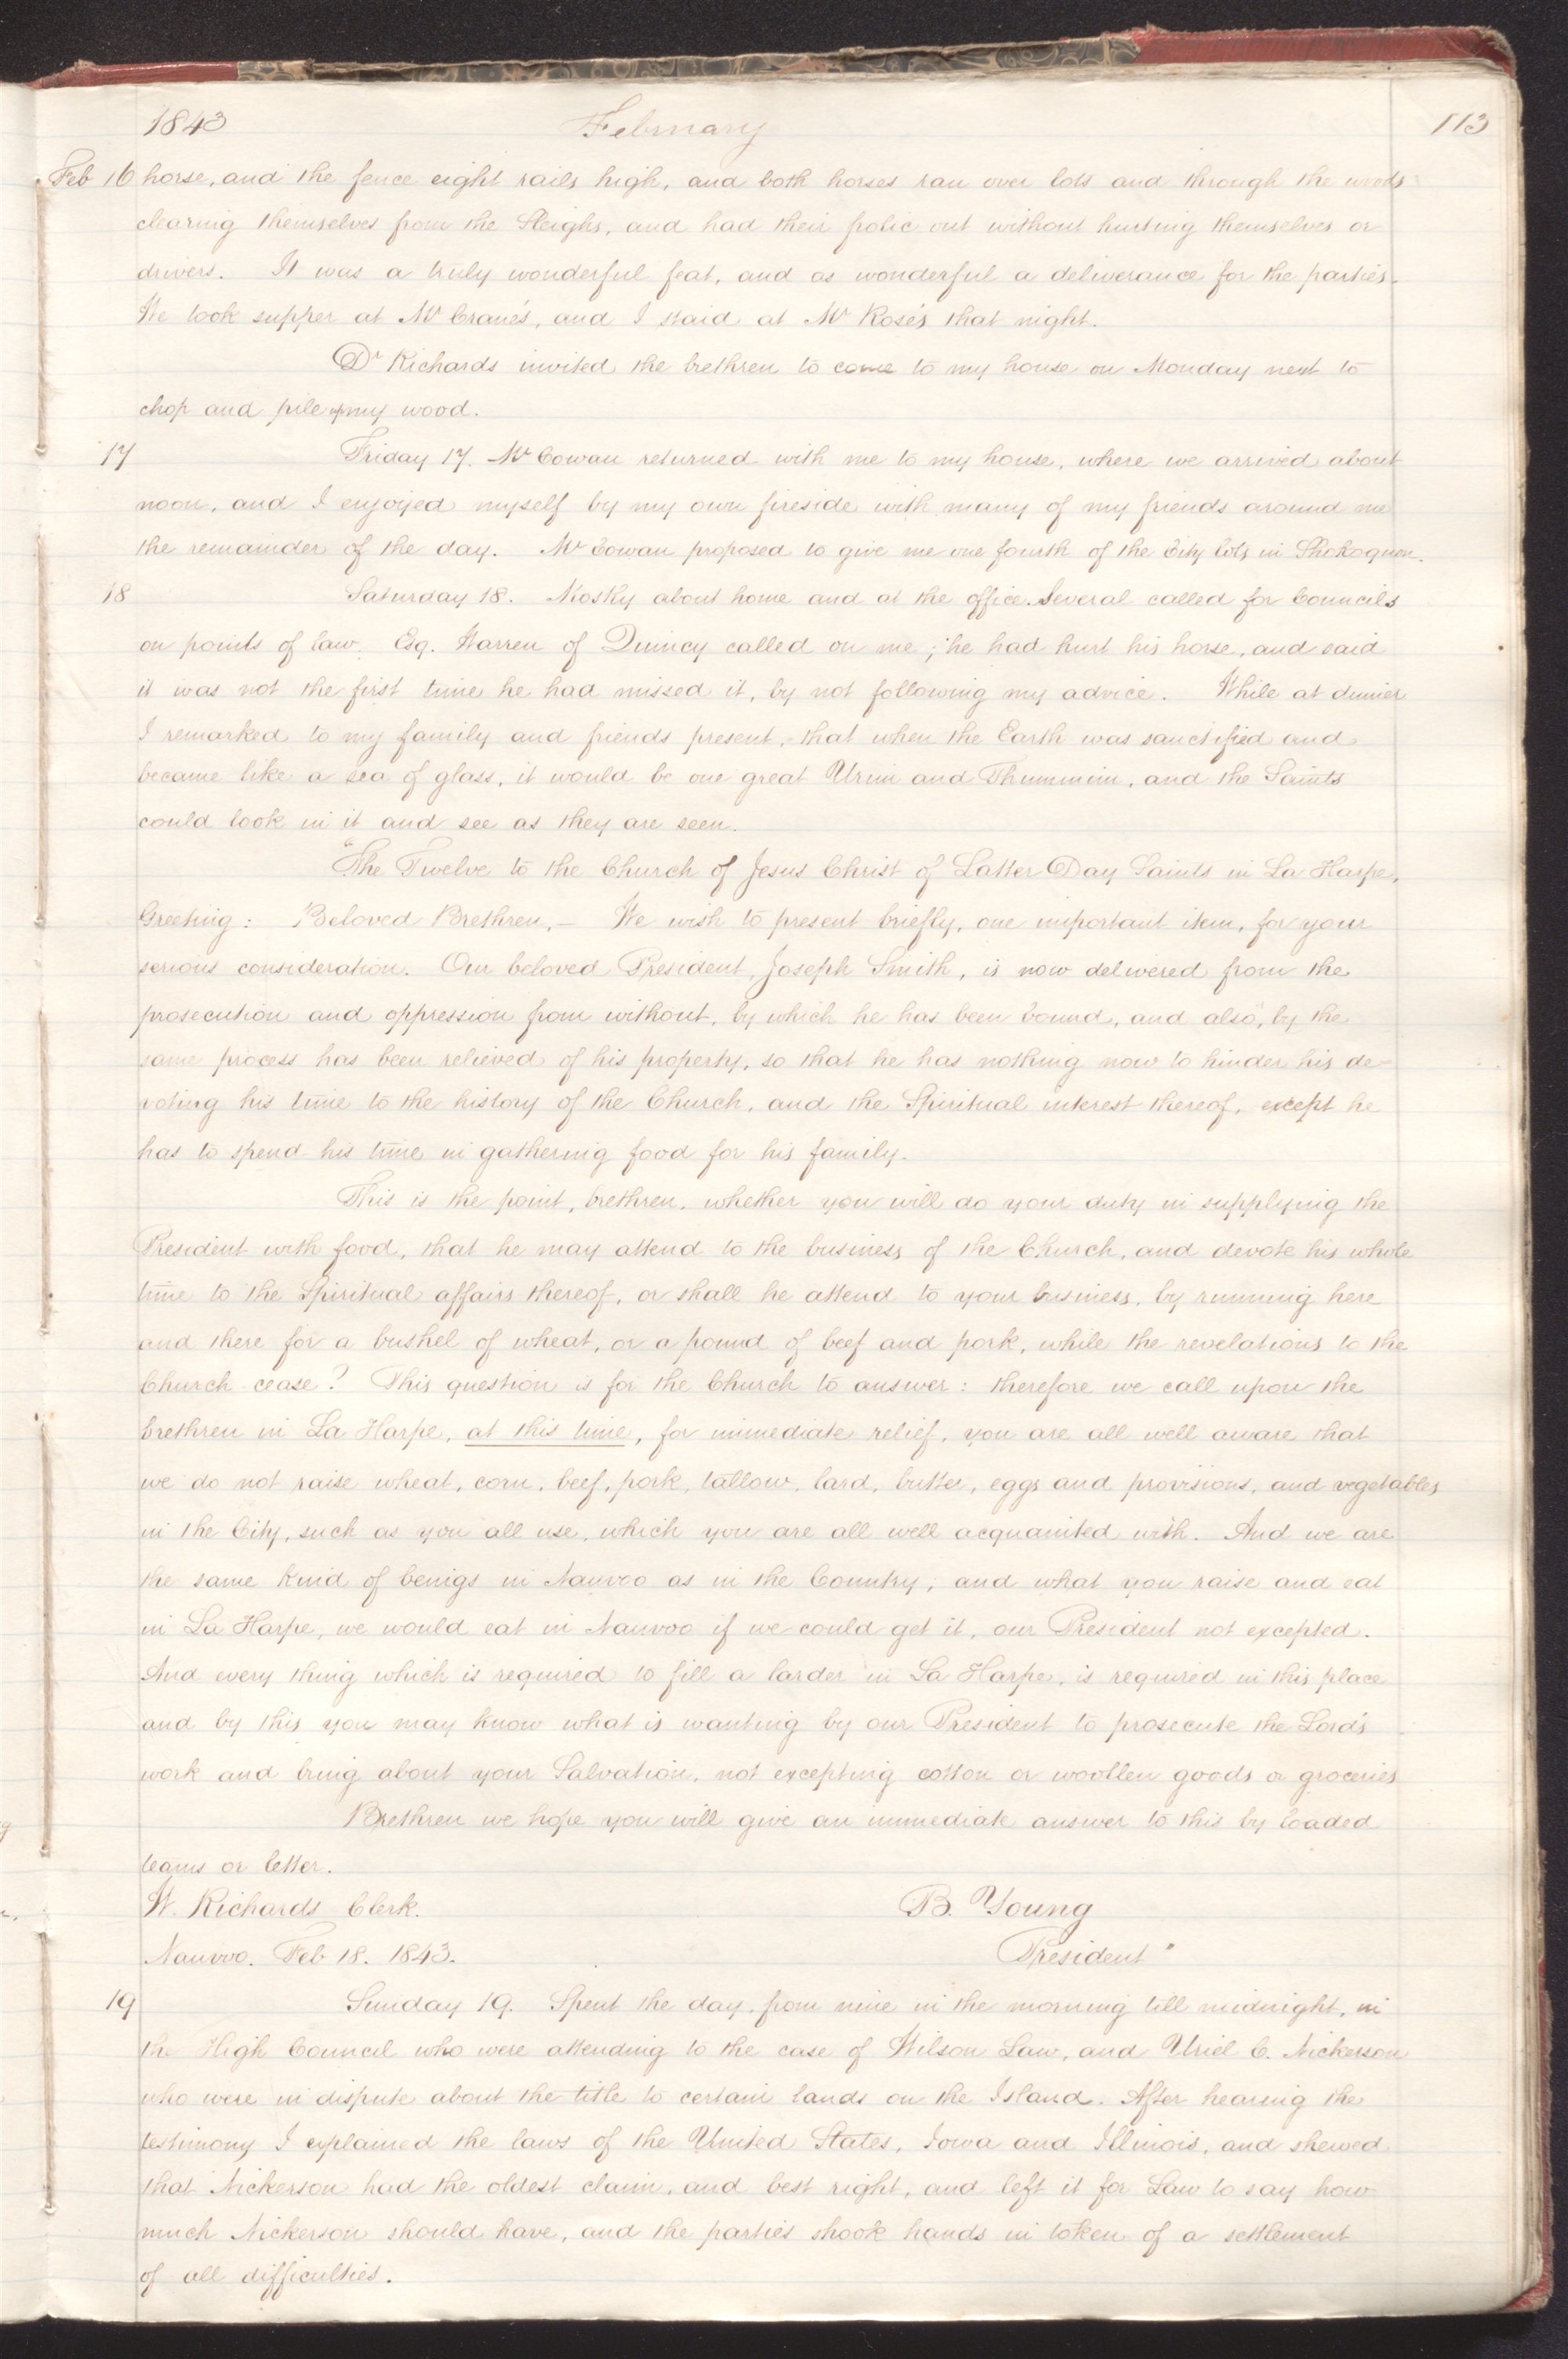 1843 February 113
Feb 16 horse, and the fence eight rails high, and both horses ran over lots and through the woods
clearing themselves from the Sleighs, and had their frolic out without hurting themselves or
drivers. It was a truly wonderful feat, and as wonderful a deliverance for the parties.
We took supper at Mr Crane's, and I staid at Mr Rose's that night.
Dr Richards invited the brethren to come to my house on Monday next to
chop and pile up my wood.
17 Friday 17. Mr Cowan returned with me to my house, where we arrived about
noon, and I enjoyed myself by my own fireside with many of my friends around me
the remainder of the day. Mr Cowan proposed to give me one fourth of the City lots in Shokoquon.
18 Saturday 18. Mostly about home and at the office. Several called for Councils
on points of law. Esq. Warren of Quincy called on me; he had hurt his horse, and said
it was not the first time he had missed it, by not following my advice. While at dinner
I remarked to my family and friends present, that when the Earth was sanctified and
became like a sea of glass, it would be one great Urim and Thummim, and the Saints
could look in it and see as they are seen.
"The Twelve to the Church of Jesus Christ of Latter Day Saints in La Harpe,
Greeting: Beloved Brethren,— We wish to present briefly, one important item, for your
serious consideration. Our beloved President, Joseph Smith, is now delivered from the
prosecution and oppression from without, by which he has been bound, and also, by the
same process has been relieved of his property, so that he has nothing now to hinder his de-
voting his time to the history of the Church, and the Spiritual interest thereof, except he
has to spend his time in gathering food for his family.
This is the point, brethren, whether you will do your duty in supplying the
President with food, that he may attend to the business of the Church, and devote his whole
time to the Spiritual affairs thereof, or shall he attend to your business, by running here
and there for a bushel of wheat, or a pound of beef and pork, while the revelations to the
Church cease? This question is for the Church to answer: therefore we call upon the
brethren in La Harpe, at this time, for immediate relief, you are all well aware that
we do not raise wheat, corn, beef, pork, tallow, lard, butter, eggs and provisions, and vegetables
in the City, such as you all use, which you are all well acquainted with. And we are
the same kind of benigs in Nauvoo as in the Country; and what you raise and eat
in La Harpe, we would eat in Nauvoo if we could get it, our President not excepted.
And every thing which is required to fill a larder in La Harpe, is required in this place
and by this you may know what is wanting by our President to prosecute the Lord's
work and bring about your Salvation, not excepting cotton or woollen goods or groceries
Brethren we hope you will give an immediate answer to this by loaded
teams or letter.
W. Richards Clerk. B. Young
Nauvoo. Feb 18. 1843. President"
19 Sunday 19. Spent the day, from nine in the morning till midnight, in
the High Council who were attending to the case of Wilson Law, and Uriel C. Nickerson
who were in dispute about the title to certain lands on the Island. After hearing the
testimony I explained the laws of the United States, Iowa and Illinois, and shewed
that Nickerson had the oldest claim, and best right, and left it for Law to say how
much Nickerson should have, and the parties shook hands in token of a settlement
of all difficulties.